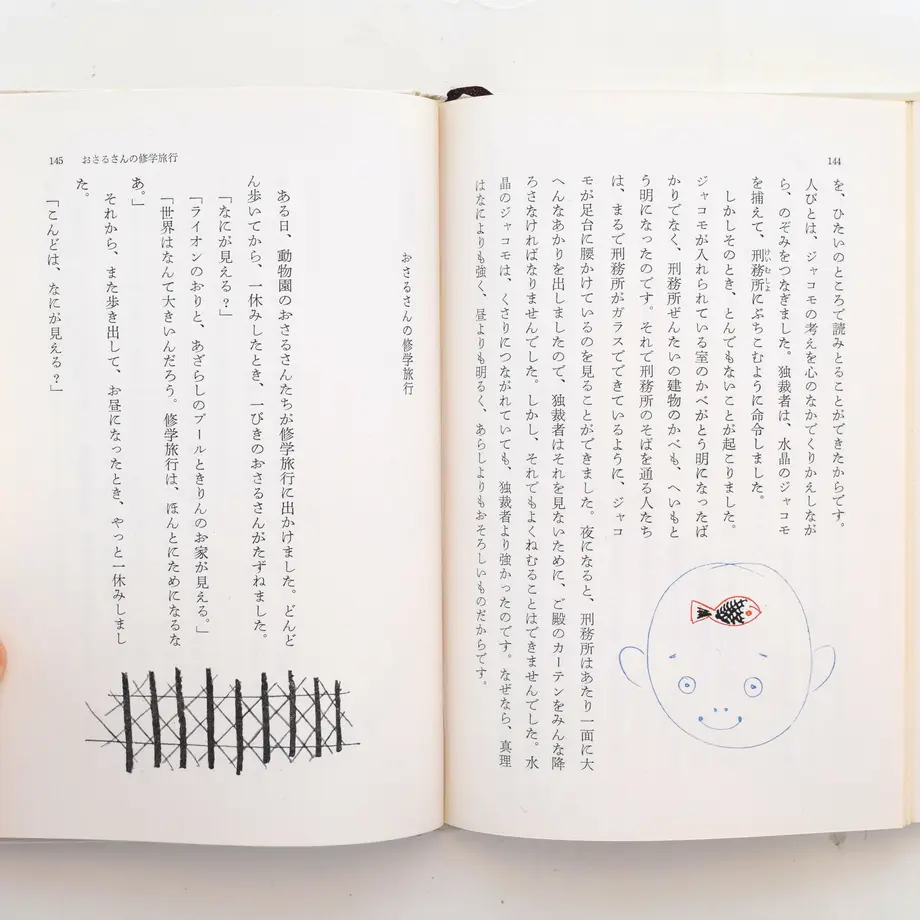 144
を、ひたいのところで読みとることができたからです。
人びとは、ジャコモの考えを心のなかでくりかえしなが
ら、のぞみをつなぎました。独裁者は、水晶のジャコモ
を捕えて、刑務所にぶちこむように命令しました。
けいむしょ
しかしそのとき、とんでもないことが起こりました。
ジャコモが入れられている室のかべがとう明になったば
かりでなく、刑務所ぜんたいの建物のかべも、へいもと
う明になったのです。それで刑務所のそばを通る人たち
は、まるで刑務所がガラスでできているように、ジャコ
モが足台に腰かけているのを見ることができました。夜になると、刑務所はあたり一面に大
へんなあかりを出しましたので、独裁者はそれを見ないために、ご殿のカーテンをみんな降
ろさなければなりませんでした。しかし、それでもよくねむることはできませんでした。水
晶のジャコモは、くさりにつながれていても、独裁者より強かったのです。なぜなら、真理
はなによりも強く、昼よりも明るく、あらしよりもおそろしいものだからです。
145 おさるさんの修学旅行
おさるさんの修学旅行
ある日、動物園のおさるさんたちが修学旅行に出かけました。どんど
ん歩いてから、一休みしたとき、一ぴきのおさるさんがたずねました。
「なにが見える?」
「ライオンのおりと、あざらしのプールときりんのお家が見える。」
「世界はなんて大きいんだろう。修学旅行は、ほんとにためになるな
あ。」
それから、また歩き出して、お昼になったとき、やっと一休みしまし
た。
「こんどは、なにが見える?」